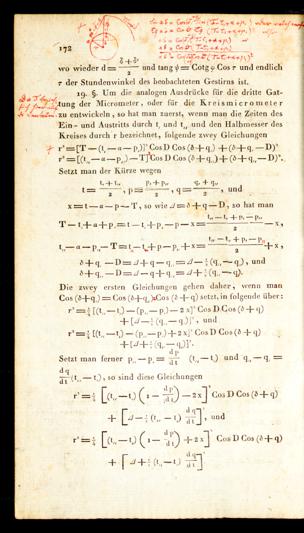 172
wo wieder d = (δ + δ')/2 und tang ψ = Cotg φ Cos τ und endlich
τ der Stundenwinkel des beobachteten Gestirns ist.
19. §. Um die analogen Ausdrücke für die dritte Gat-
tung der Micrometer, oder für die Kreismicrometer
zu entwickeln, so hat man zuerst, wenn man die Zeiten des
Ein- und Austritts durch t, und t,, und den Halbmesser des
Kreises durch r bezeichnet, folgende zwey Gleichungen
r² = [T − (t, − a − p,)]² Cos D Cos (δ + q,) + (δ + q, − D)²
r² = [(t,, − a − p,,) − T]² Cos D Cos (δ + q,,) + (δ + q,, − D)².
Setzt man der Kürze wegen
t = (t, + t,,)/2, p = (p, + p,,)/2, q = (q, + q,,)/2, und
x = t − a − p − T, so wie Δ = δ + q − D, so hat man
T − t, + a + p, = t − t, − p + p, − x = (t,, − t, + p, − p,,)/2 − x,
t,, − a − p,, − T = t,, − t + p − p,, + x = (t,, − t, + p, − p,,)/2 + x,
δ + q, − D = Δ − q + q, = Δ − ½ (q,, − q,), und
δ + q,, − D = Δ − q + q,, = Δ + ½ (q,, − q,).
Die zwey ersten Gleichungen gehen daher, wenn man
Cos (δ + q,) = Cos (δ + q,,) = Cos (δ + q) setzt, in folgende über:
r² = ¼ [(t,, − t,) − (p,, − p,) − 2 x]² Cos D Cos (δ + q)
+ [Δ − ½ (q,, − q,)]², und
r² = ¼ [(t,, − t,) − (p,, − p,) + 2 x]² Cos D Cos (δ + q)
+ [Δ + ½ (q,, − q,)]².
Setzt man ferner p,, − p, = dp/dt (t,, − t,) und q,, − q, =
dq/dt (t,, − t,), so sind diese Gleichungen
r² = ¼ [(t,, − t,) (1 − dp/dt) − 2 x]² Cos D Cos (δ + q)
+ [Δ − ½ (t,, − t,) dq/dt]², und
r² = ¼ [(t,, − t,) (1 − dp/dt) + 2 x]² Cos D Cos (δ + q)
+ [Δ + ½ (t,, − t,) dq/dt]²